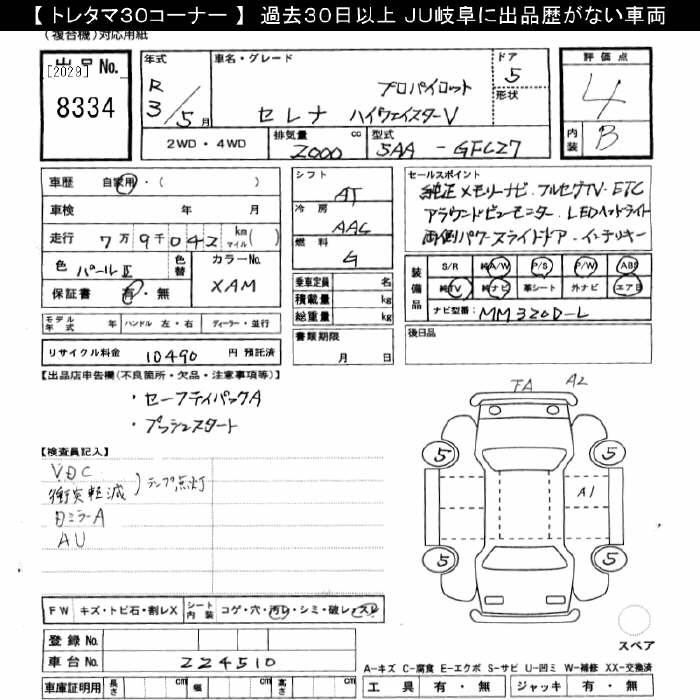 【トレタマ30コーナー】 過去30日以上 JU岐阜に出品歴がない車両
(複合機)対応用紙
出品No. [2029] 8334
年式 R 3/5月
車名・グレード プロパイロット
セレナ ハイウェイスターV
ドア 5
形状
評価点 4
内装 B
2WD・4WD
排気量 2000 cc
型式 5AA - GFC27
車歴 自家用・( )
車検 年 月
走行 7万9千042 km マイル ( )
色 パールⅡ 色替 カラーNo. XAM
保証書 有・無
シフト AT
冷房 AAC
燃料 G
乗車定員 名
積載量 kg
総重量 kg
書類期限 月 日
セールスポイント
純正メモリーナビ・フルセグTV・ETC
アラウンドビューモニター・LEDヘッドライト
両側パワースライドドア・インテリキー
装備品 S/R 純A/W P/S P/W ABS
純TV 純ナビ 革シート 外ナビ エアB
ナビ型番: MM320D-L
モデル年式 年 ハンドル 左・右 ディーラー・並行
後日品
リサイクル料金 10490 円 預託済
【出品店申告欄(不良箇所・欠品・注意事項等)】
・セーフティパックA
・プッシュスタート
【検査員記入】
VDC
衝突軽減 ) ランプ点灯
日ミラーA
AU
FA A2
5 5
A1
5 5
FW キズ・トビ石・割レX シート内装 コゲ・穴・汚レ・シミ・破レ・スレ
登録No.
車台No. 224510
スペア
A-キズ C-腐食 E-エクボ S-サビ U-凹ミ W-補修 XX-交換済
車庫証明用 長さ cm 幅 cm 高さ cm
工具 有・無 ジャッキ 有・無